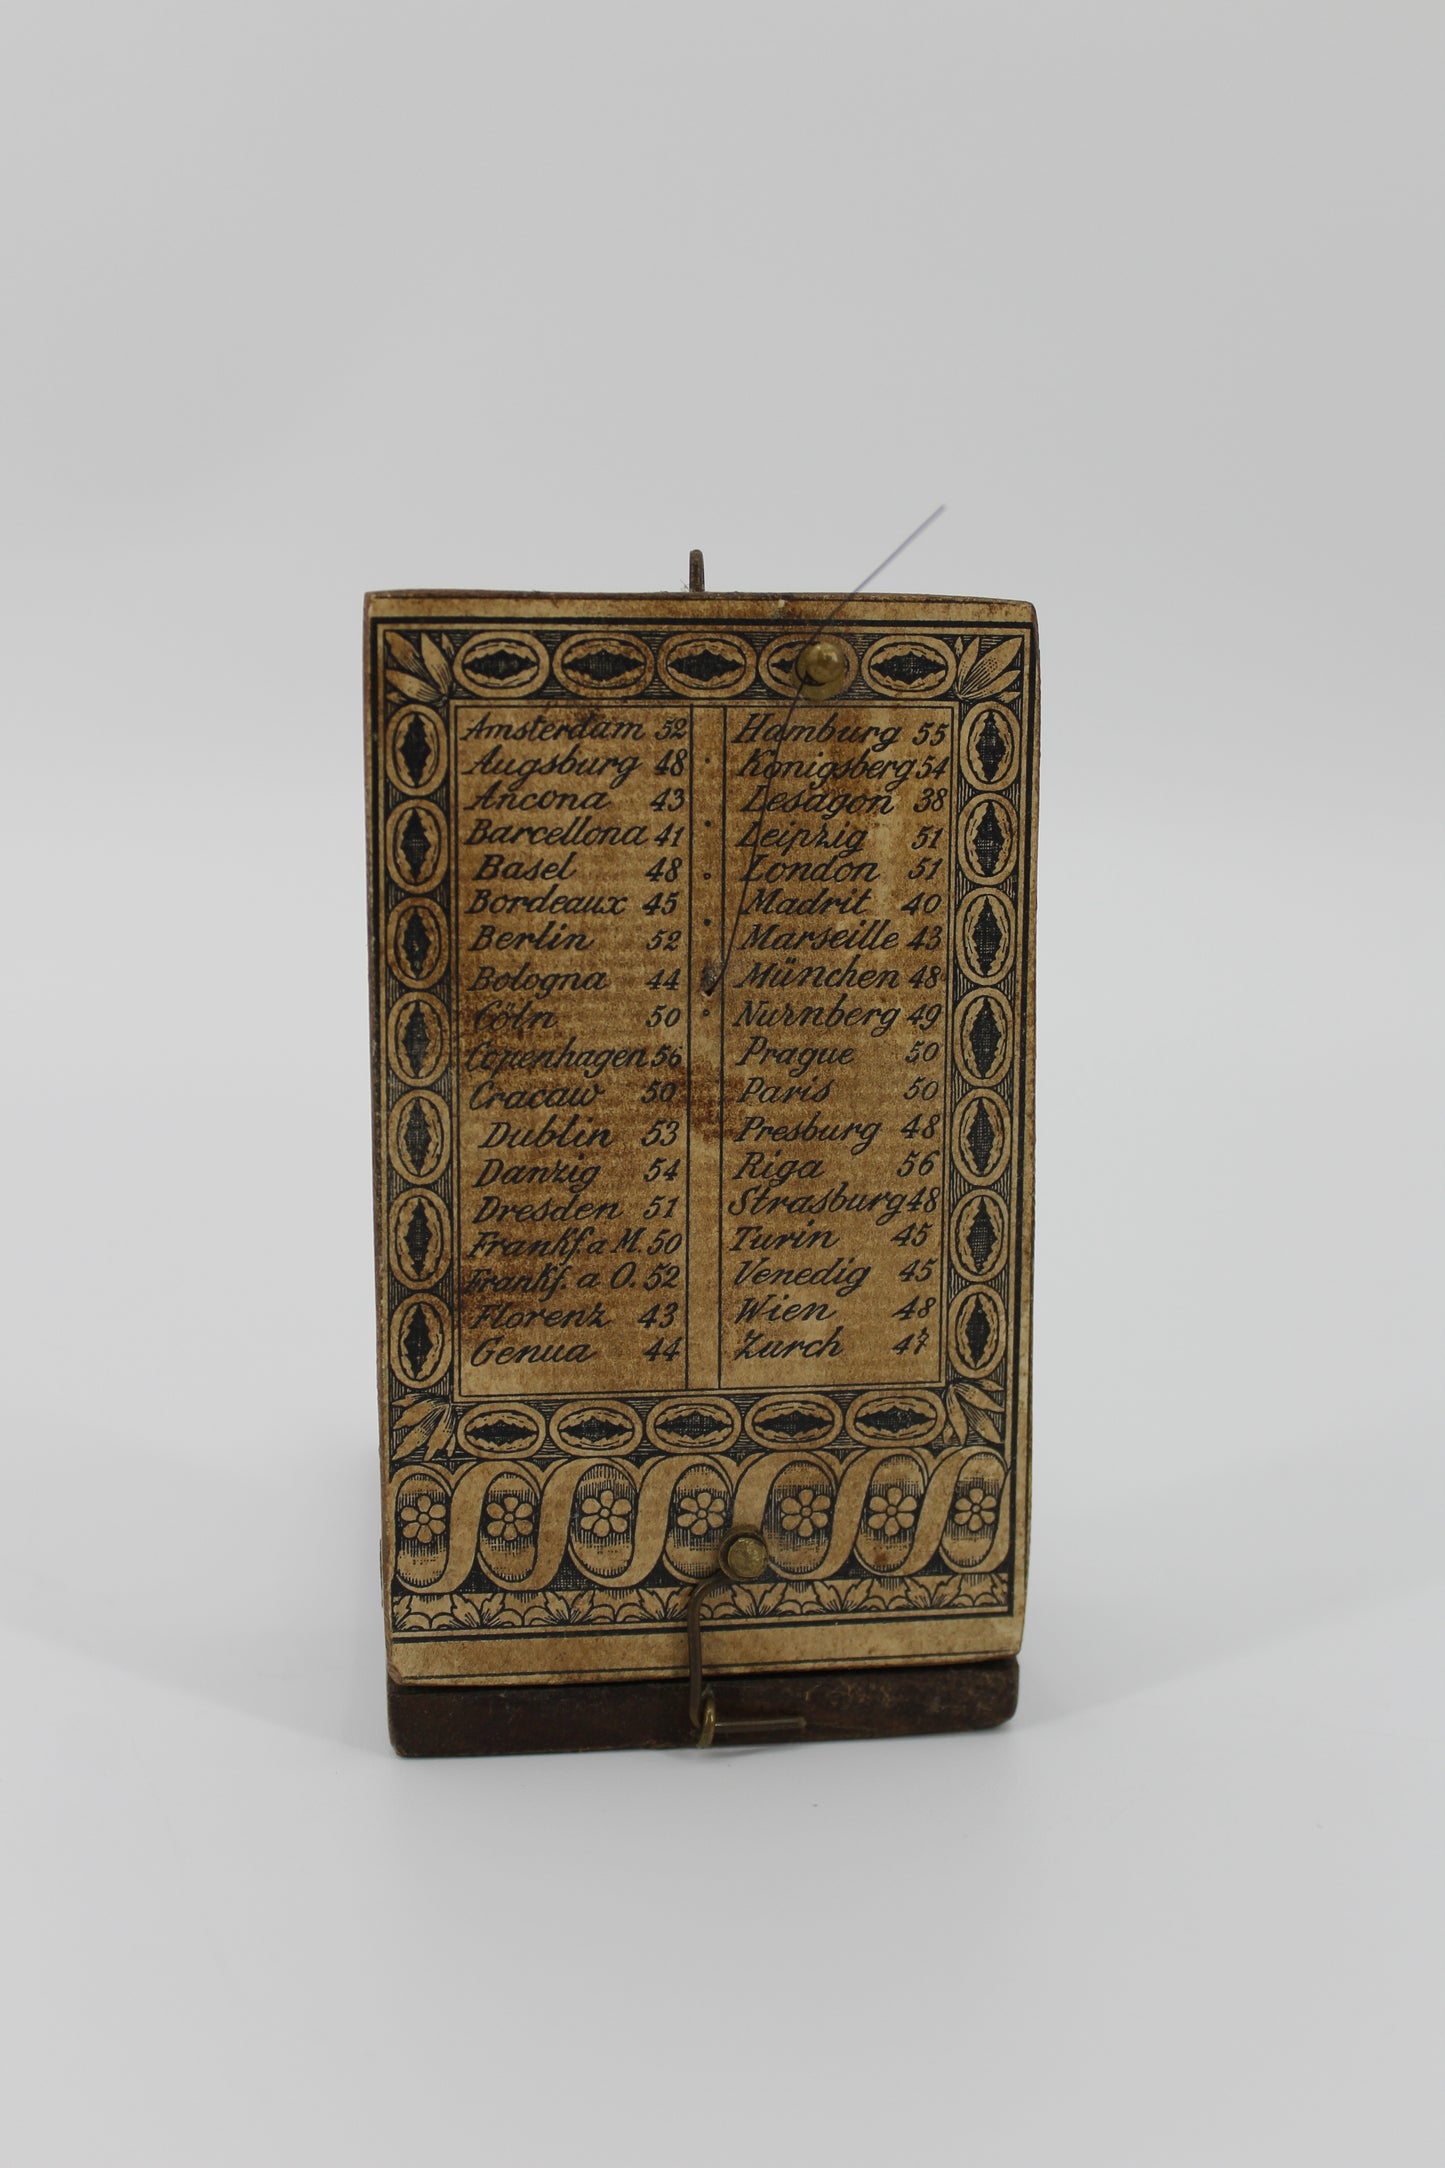 Amsterdam 52
Augsburg 48
Ancona 43
Barcellona 41
Basel 48
Bordeaux 45
Berlin 52
Bologna 44
Cöln 50
Copenhagen 56
Cracaw 50
Dublin 53
Danzig 54
Dresden 51
Frankf. a M. 50
Frankf. a O. 52
Florenz 43
Genua 44
Hamburg 55
Konigsberg 54
Lesagon 38
Leipzig 51
London 51
Madrit 40
Marseille 43
München 48
Nurnberg 49
Prague 50
Paris 50
Presburg 48
Riga 56
Strasburg 48
Turin 45
Venedig 45
Wien 48
Zurch 47